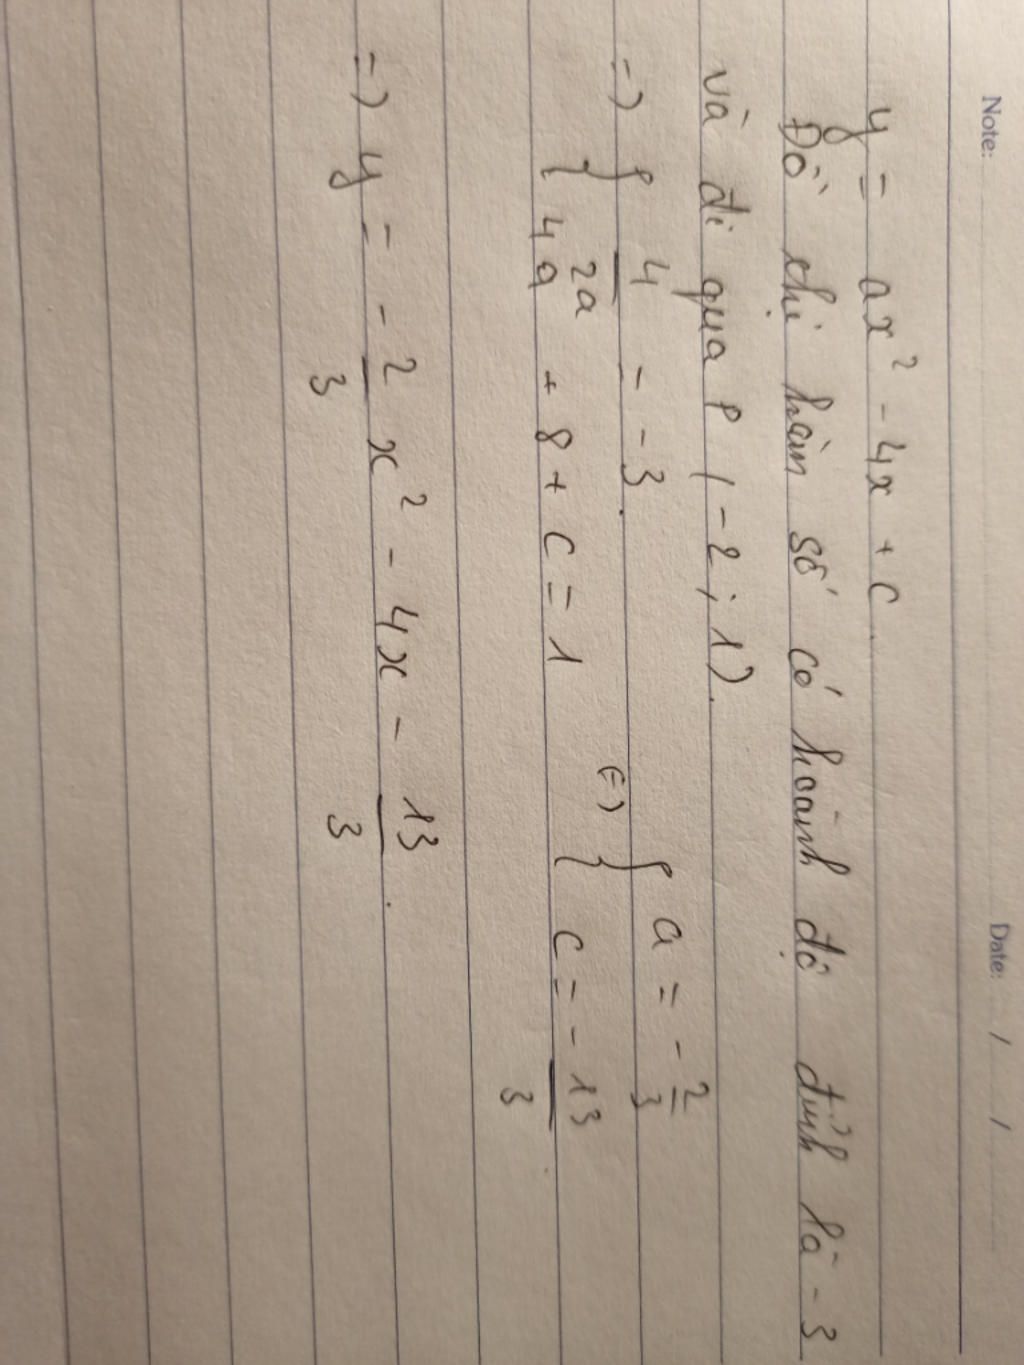 Note:
Date: / /
y = ax² - 4x + c.
Đồ thị hàn số có hoành độ đỉnh là - 3
và đi qua P (-2; 1).
=> { 4/2a = -3. <=> { a = -2/3
{ 4a + 8 + c = 1 { c = -13/3
=> y = -2/3 x² - 4x - 13/3.